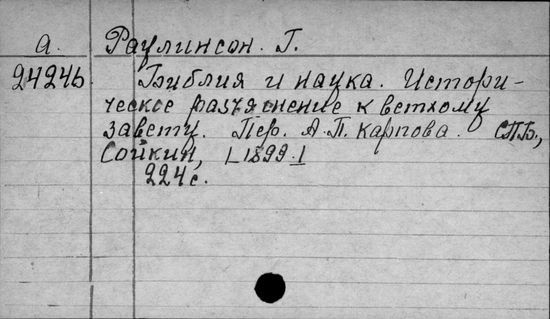 а. Раулинсон. Г.
24246 Библия и наука. Истори-
ческое разъяснение к ветхому
завету. Пер. А.П. Карпова. СПБ.,
Сойкин, [1899.]
224 с.